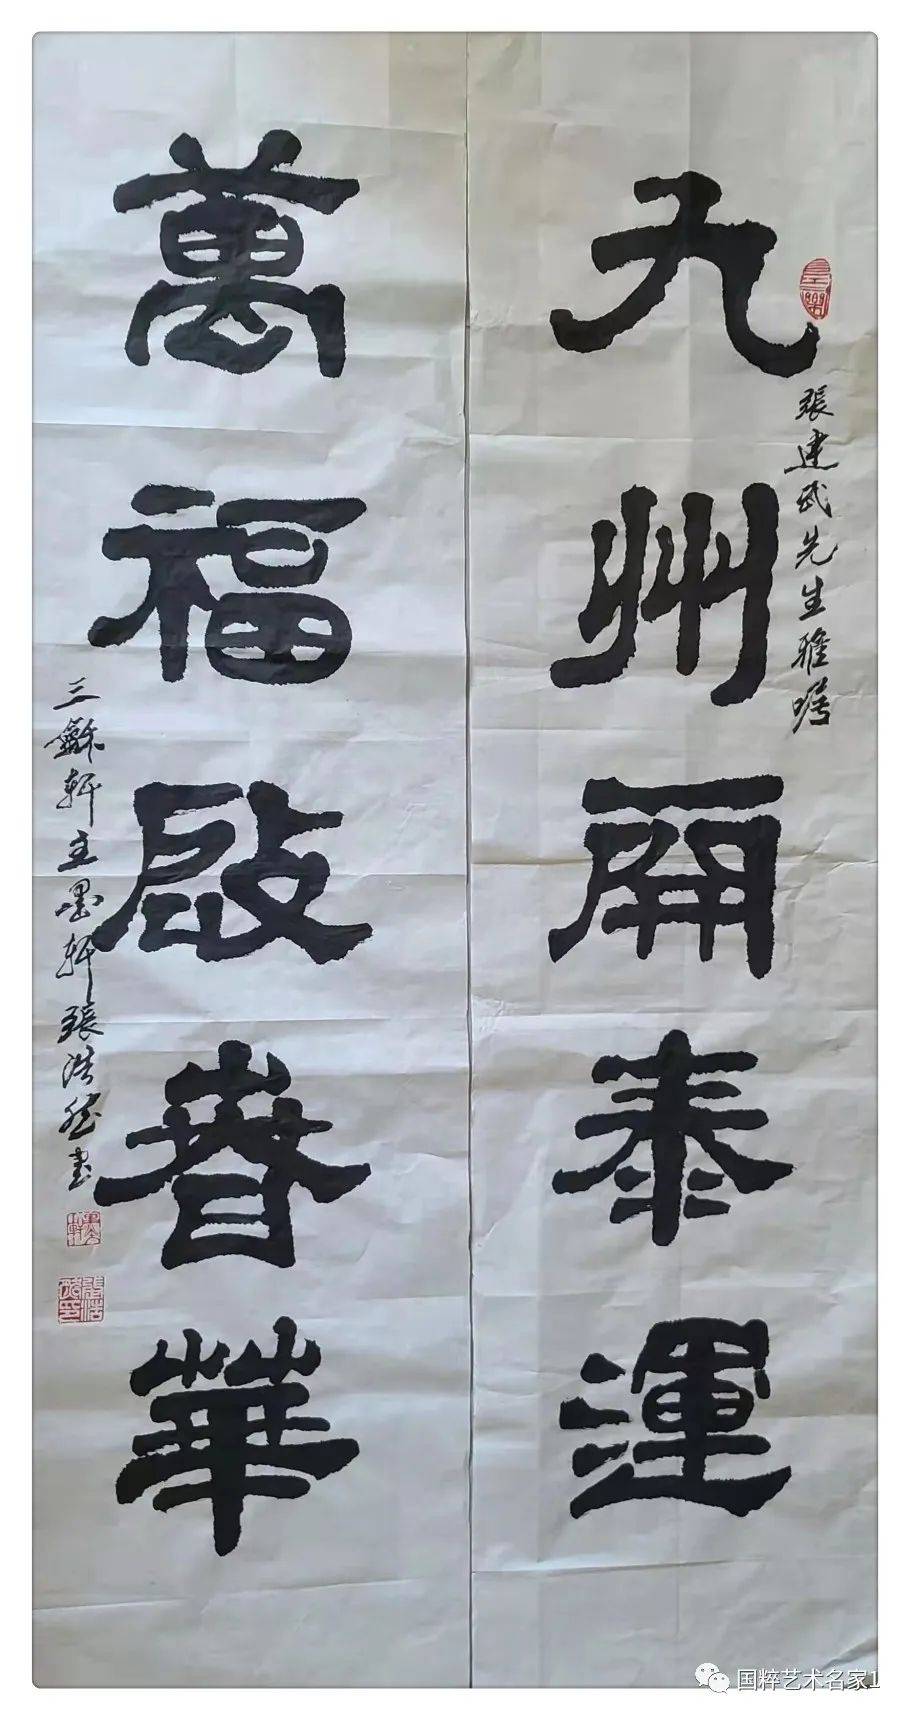 九州開泰運
張建武先生雅嘱
萬福啟春華
三龢軒主墨軒張浩然書
墨軒
国粹艺术名家1